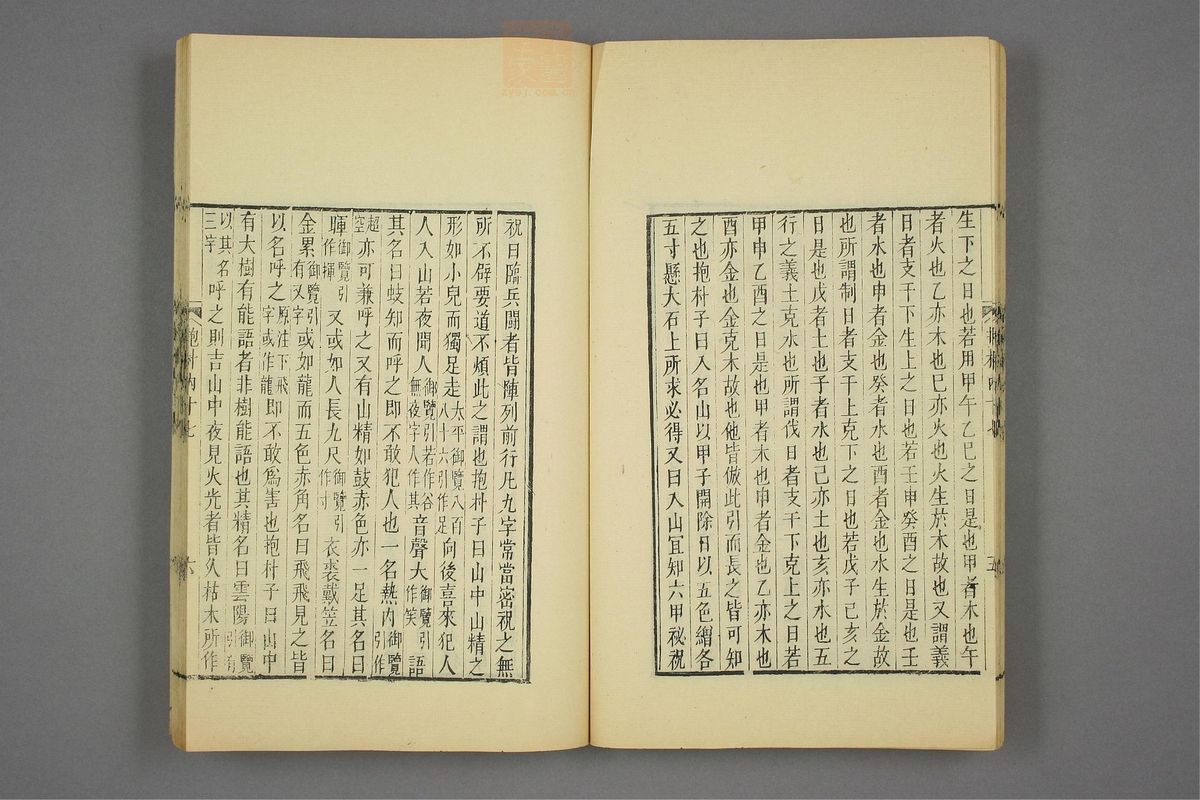 生下之日也若用甲午乙巳之日是也甲者木也午
者火也乙亦木也巳亦火也火生於木故也又謂義
日者支干下生上之日也若壬申癸酉之日是也壬
者水也申者金也癸者水也酉者金也水生於金故
也所謂制日者支干上克下之日也若戊子己亥之
日是也戊者土也子者水也己亦土也亥亦水也五
行之義土克水也所謂伐日者支干下克上之日若
甲申乙酉之日是也甲者木也申者金也乙亦木也
酉亦金也金克木故也他皆倣此引而長之皆可知
之也抱朴子曰入名山以甲子開除日以五色繒各
五寸懸大石上所求必得又曰入山宜知六甲祕祝
祝曰臨兵鬬者皆陣列前行凡九字常當密祝之無
所不辟要道不煩此之謂也抱朴子曰山中山精之
形如小兒而獨足走太平御覽八百八十六引作足向後喜來犯人
人入山若夜聞人御覽引若作谷無夜字人作其音聲大御覽引作笑語
其名曰蚑知而呼之即不敢犯人也一名熱內御覽引作
超空亦可兼呼之又有山精如鼓赤色亦一足其名曰
暉御覽引作揮又或如人長九尺御覽引作寸衣裘戴笠名曰
金累御覽引有又字或如龍而五色赤角名曰飛飛見之皆
以名呼之原注下飛字或作龍即不敢為害也抱朴子曰山中
有大樹有能語者非樹能語也其精名曰雲陽御覽引有
以其名三字呼之則吉山中夜見火光者皆久枯木所作
抱朴內十七
六
五